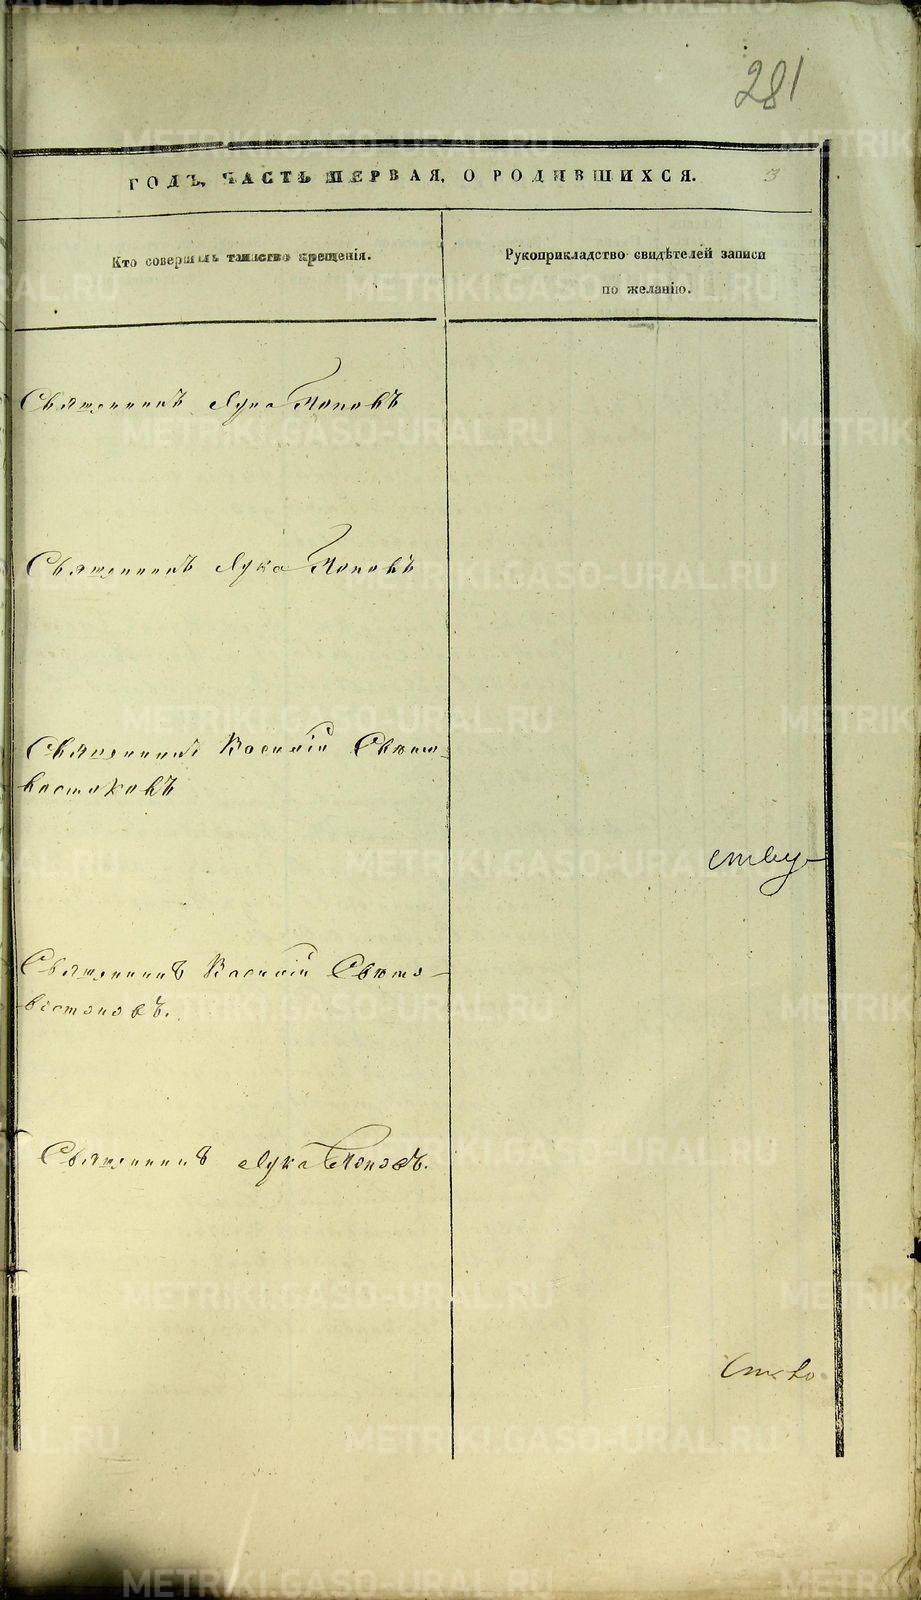 281
ГОДЪ, ЧАСТЬ ПЕРВАЯ, О РОДИВШИХСЯ.
3
Кто совершалъ таинство крещенія.
Рукоприкладство свидѣтелей записи
по желанію.
Священникъ Лука Поповъ
Священникъ Лука Поповъ
Священникъ Василій Свѣто-
востоковъ
ству-
Священникъ Василій Свѣто-
востоковъ.
Священникъ Лука Поповъ.
METRIKI.GASO-URAL.RU